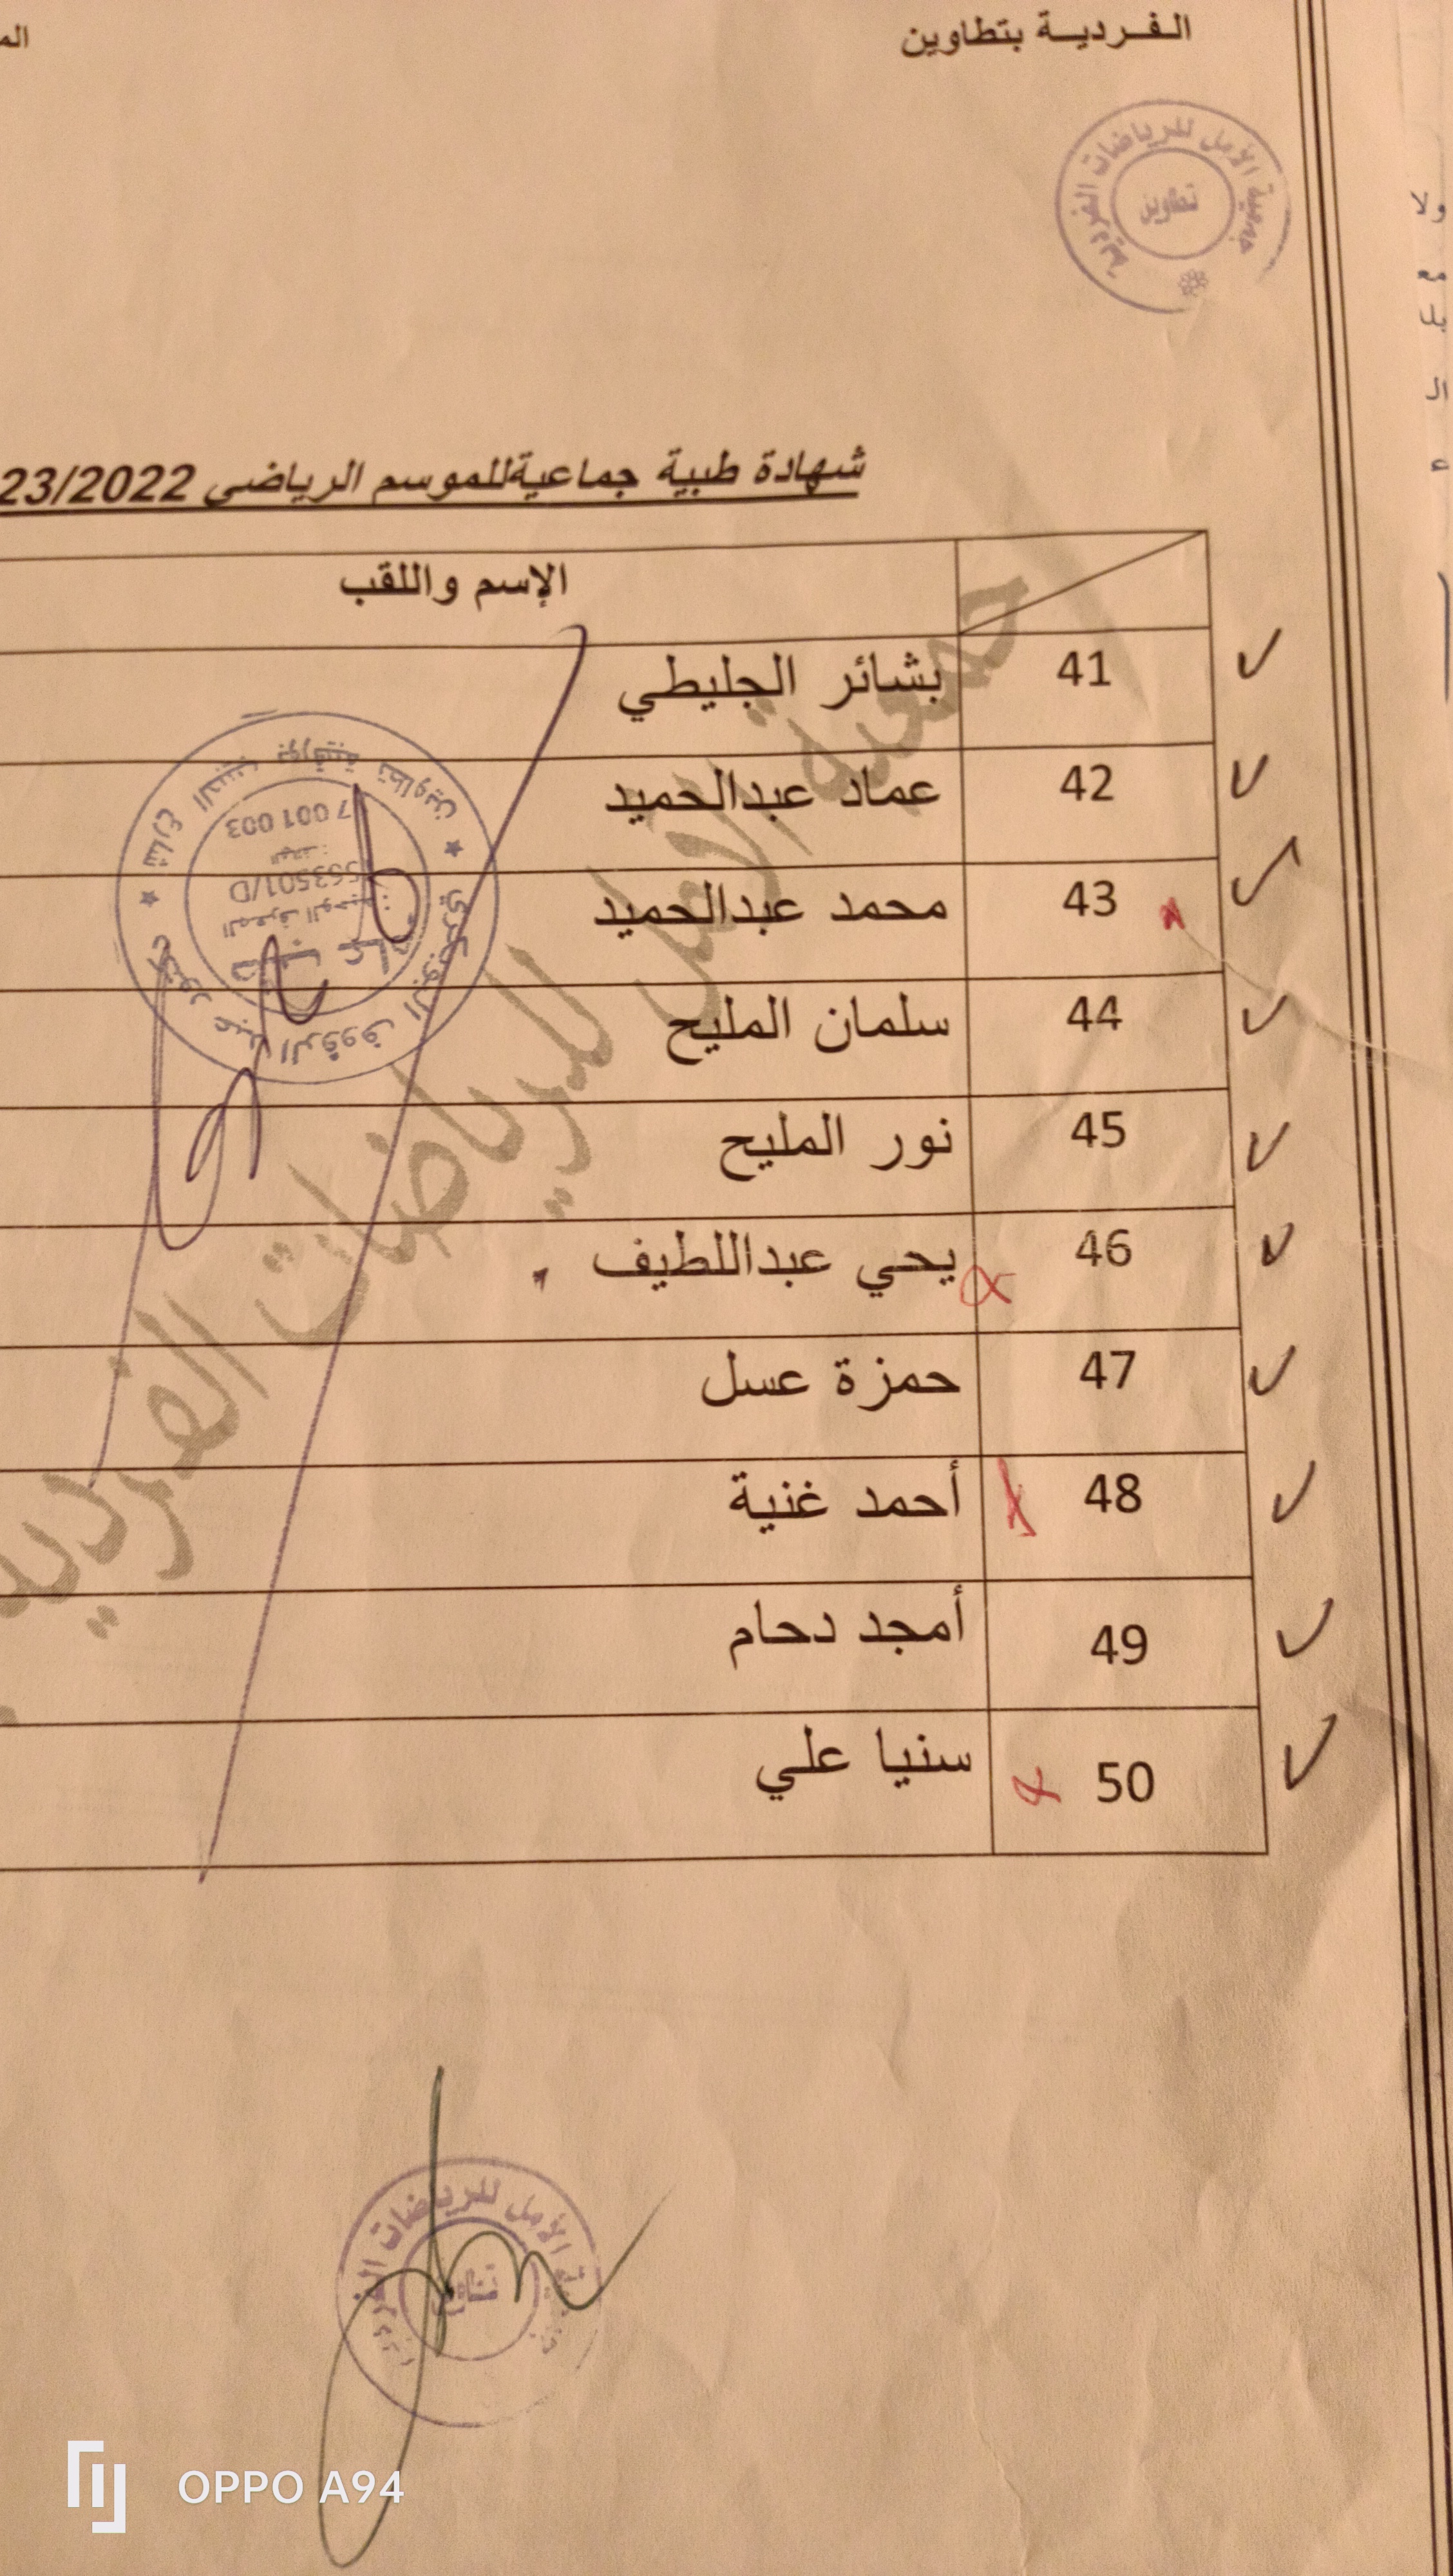 الفردية بتطاوين
جمعية الأمل للرياضات الفردية
تطاوين
شهادة طبية جماعيةللموسم الرياضي 23/2022
الإسم واللقب
41 بشائر الجليطي
42 عماد عبدالحميد
43 محمد عبدالحميد
44 سلمان المليح
45 نور المليح
46 يحي عبداللطيف
47 حمزة عسل
48 أحمد غنية
49 أمجد دحام
50 سنيا علي
جمعية الأمل للرياضات الفردية
شارع الحبيب بورقيبة تطاوين
7 001 003
الهاتف :
563501/D
المعرف الوحيد :
طب عام
عبد الرؤوف
الأمل للرياضات
OPPO A94